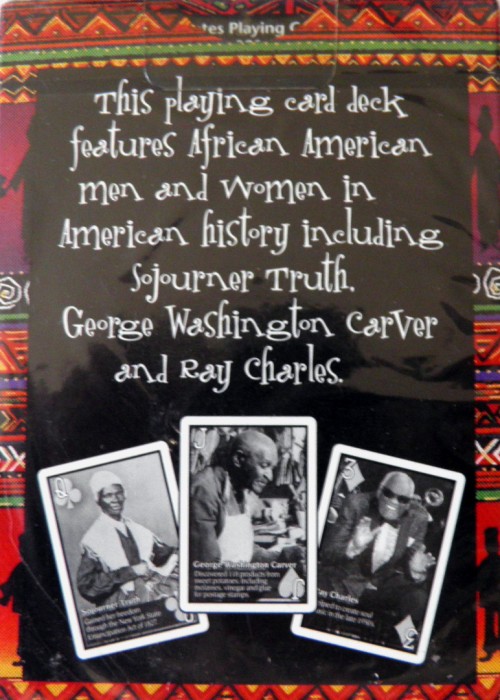 Playing
This playing card deck
features African American
men and women in
American history including
Sojourner Truth,
George Washington Carver
and Ray Charles.
Q
Sojourner Truth
Gained her freedom
through the New York State
Emancipation Act of 1827.
J
George Washington Carver
Discovered 118 products from
sweet potatoes, including
molasses, vinegar and glue
for postage stamps.
J
3
Ray Charles
to create soul
in the late 1950s.
3